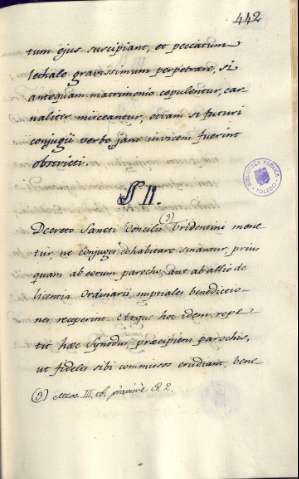 442
tum ejus suscipiant, et peccatum
lethale gravissimum perpetrare, si
antequam matrimonio copulentur, car
naliter misceantur, etiam si futuri
conjugii verbo jam invicem fuerint
obstricti.
§ II.
Decreto Sancti Concilii (2) Tridentini mone
tur, ne conjuges cohabitare sinantur, prius
quam ab eorum parocho, aut ab alio de
licentia Ordinarii, nuptiales benedictio
nes receperint. Atque hoc idem repe
tit hæc Synodus, præcipiens parochis,
ut fideles sibi commissos erudiant, bene
(2) 2.
TOLEDO